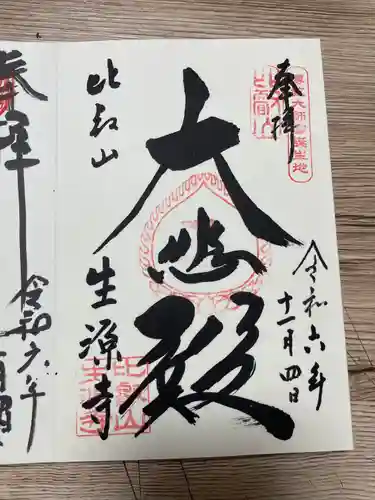 奉拝
伝教大師御誕生地
比叡山
令和六年
十一月四日
大悲殿
比叡山
生源寺
参拝
令和六年